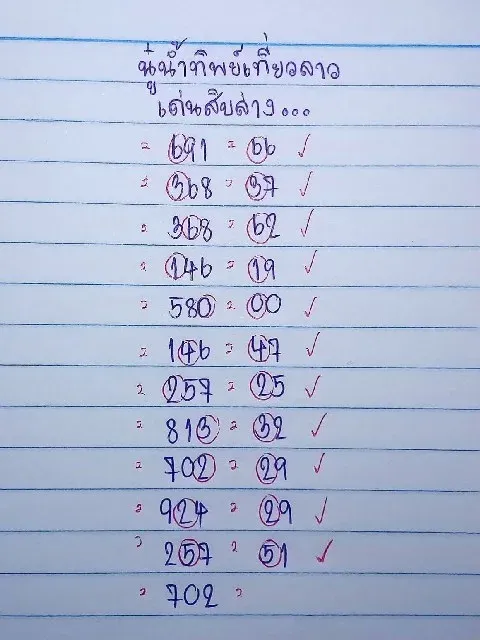 นู๋น้ำทิพย์เที่ยวลาว
เด่นสิบล่าง...
= 691 = 66 ✓
= 368 = 37 ✓
= 368 = 62 ✓
= 146 = 19 ✓
= 580 = 00 ✓
= 146 = 47 ✓
= 257 = 25 ✓
= 813 = 32 ✓
= 702 = 29 ✓
= 924 = 29 ✓
= 257 = 51 ✓
= 702 =